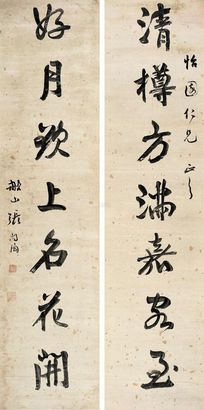 怡園仁兄正之
清樽方滿嘉客至
好月欲上名花開
船山張問陶